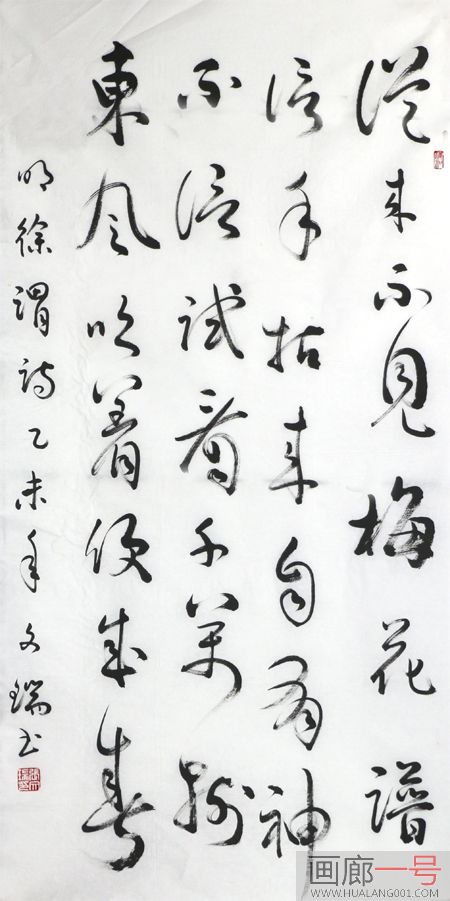 從来不見梅花譜
信手拈来自有神
不信試看千萬樹
東風吹着便成春
明徐渭詩乙未年文瑞书
画廊一号
WWW.HUALANG001.COM